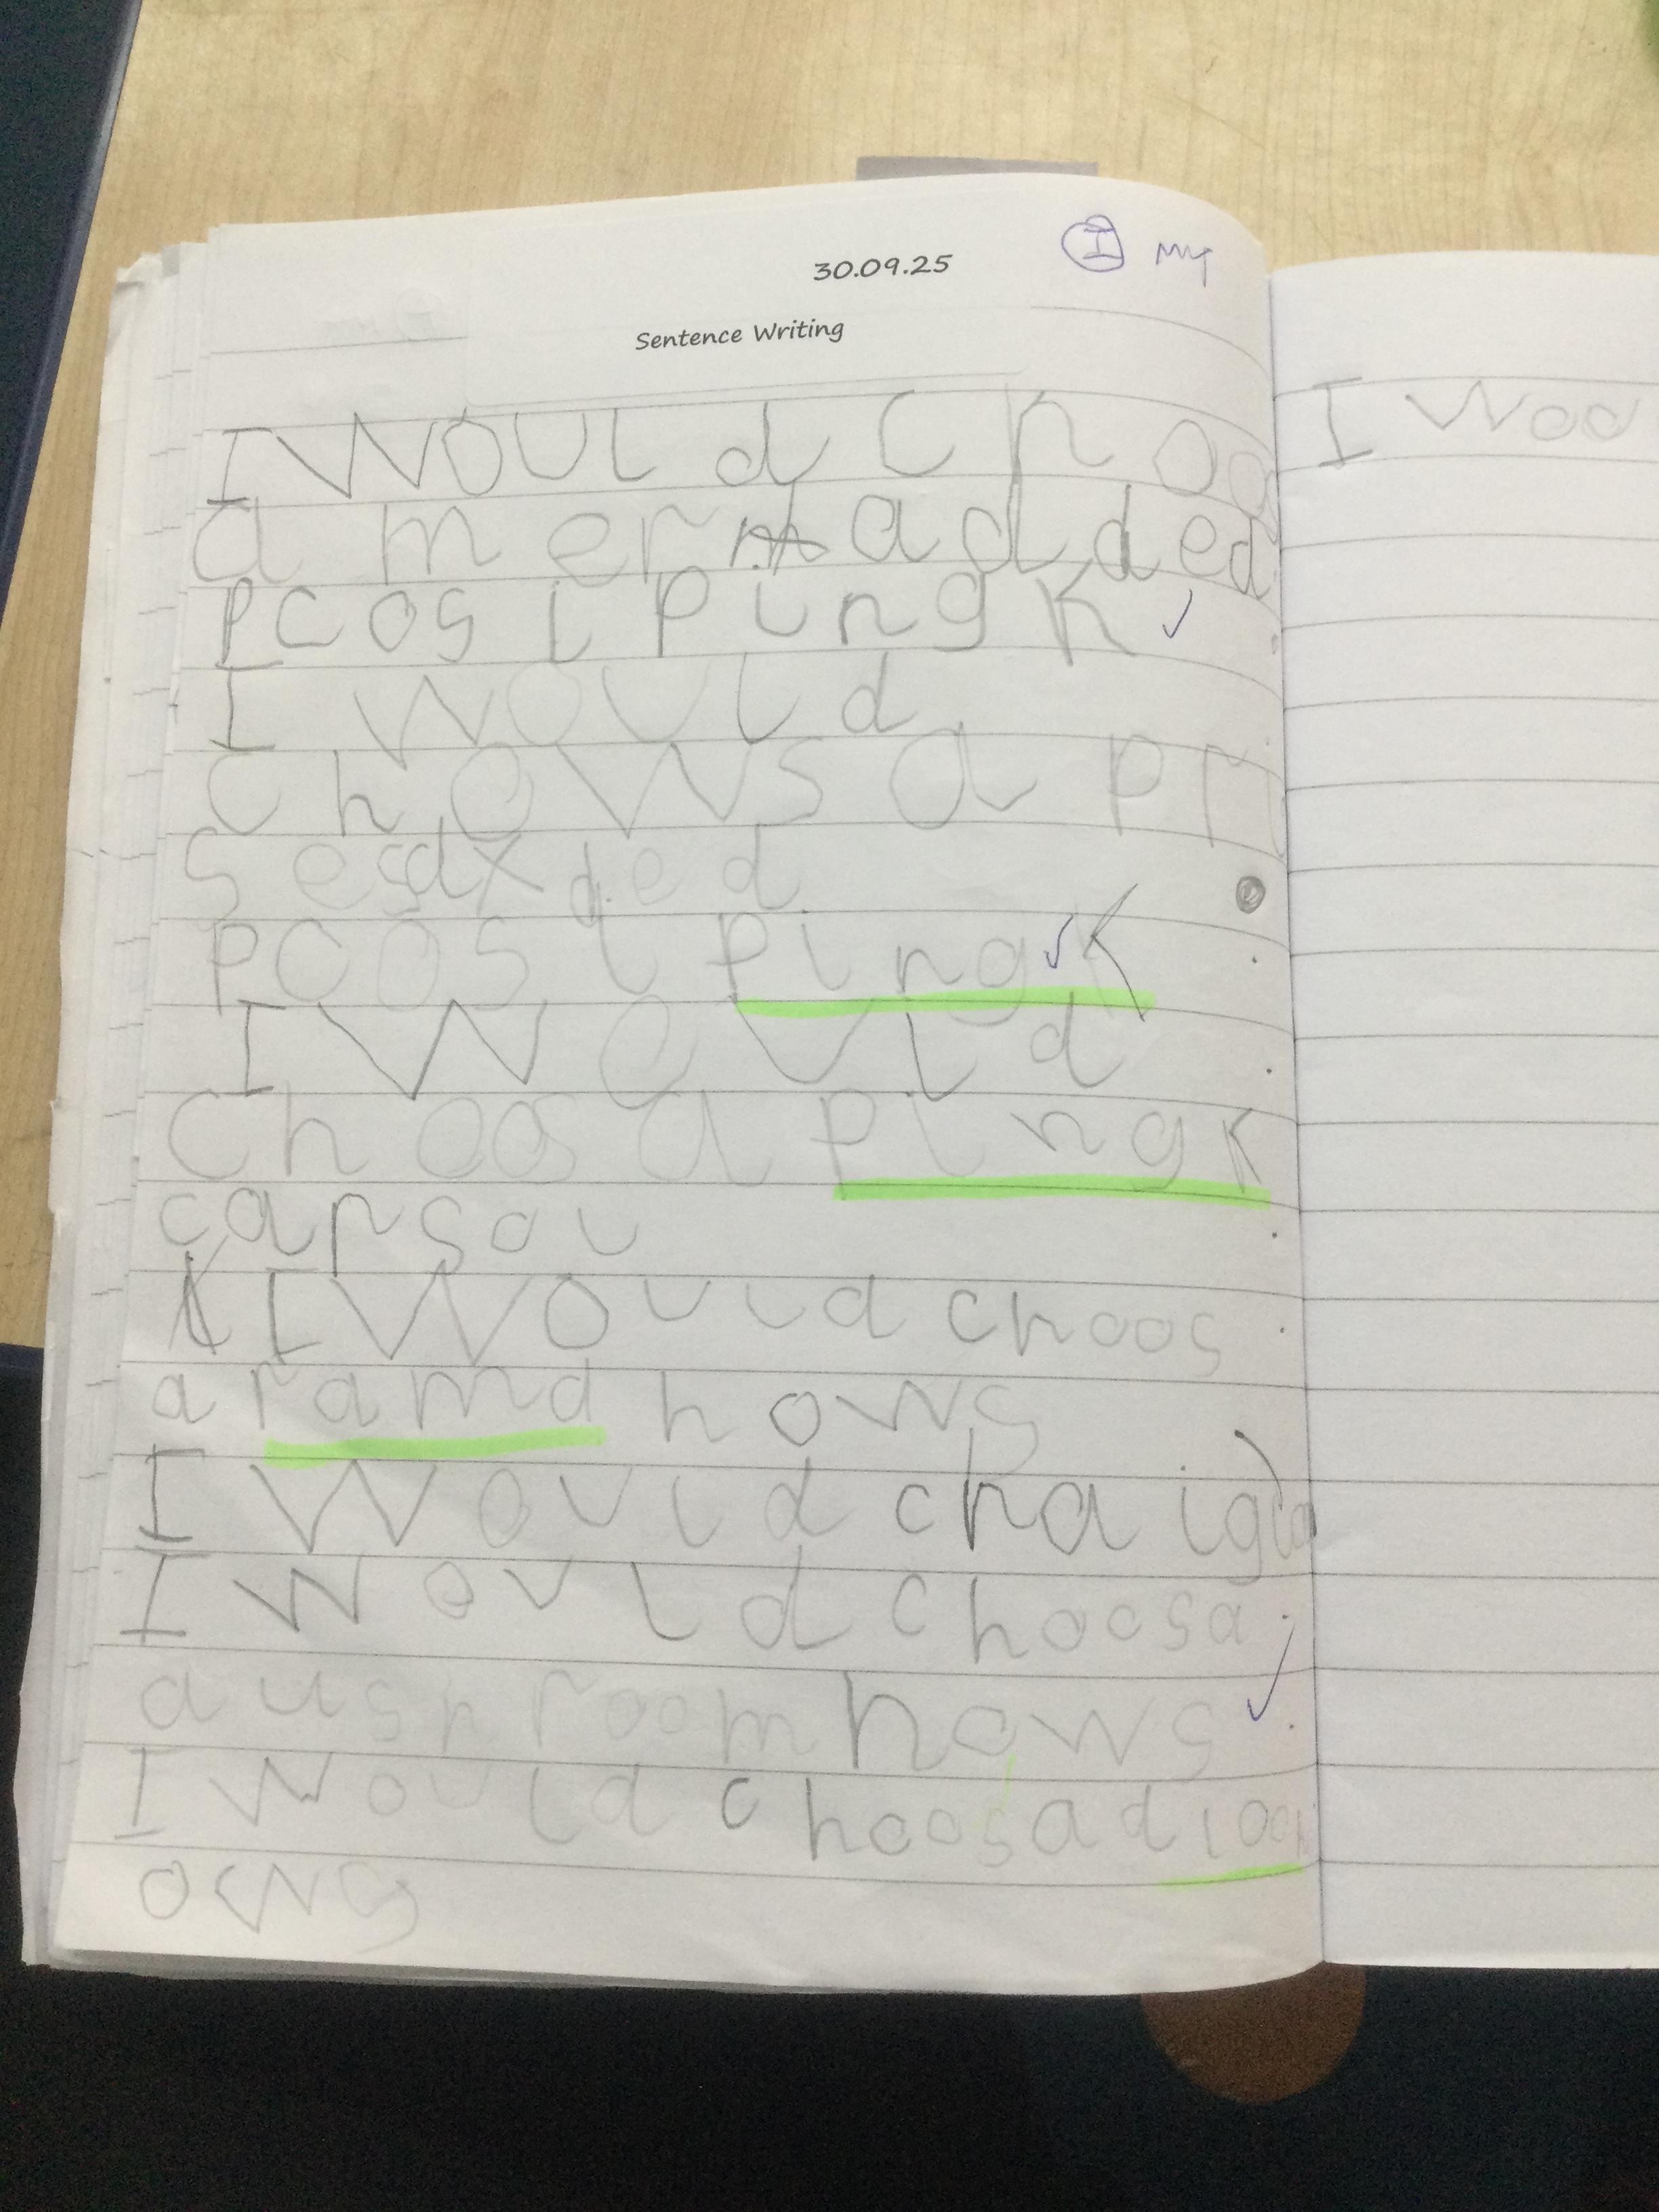 30.09.25
I my
Sentence Writing
I Would Choo
a mer added
Pcos l PingK
I would
Chows a pri
ded
Pcos l PingK
I Would
Choos a PingK
carsou
I Would choos
a ramd hows
I Would cha
I would choos a
aushroom hows
I would choos a
ows
I Woo